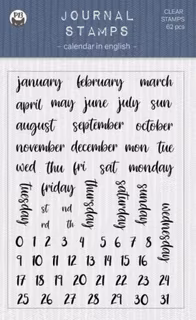 P13
JOURNAL
STAMPS
- calendar in english -
CLEAR
STAMPS
62 pcs
january february march
april may june july sun
august september october
november december mon tue
wed thu fri sat monday
tuesday
friday
st nd
rd th
thursday
saturday
sunday
wednesday
0 1 2 3 4 5 6 7 8
9 10 11 12 13 14 15 16
17 18 19 20 21 22 23 24
25 26 27 28 29 30 31